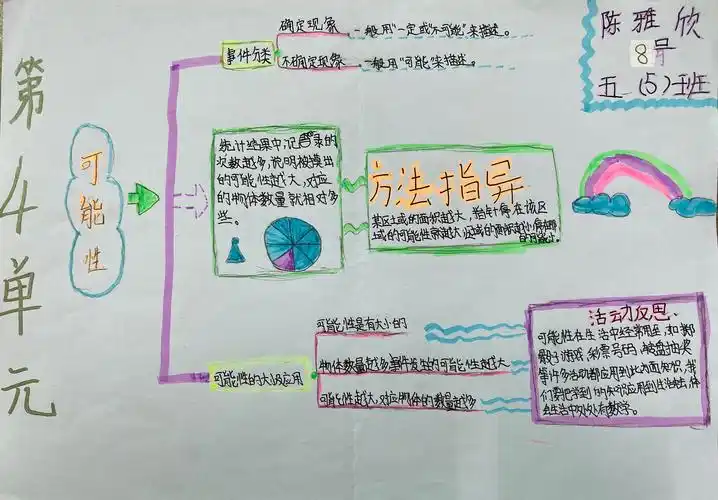 第4单元
可能性
事件分类
确定现象
一般用"一定或"不可能"来描述。
不确定现象
一般用"可能"来描述。
陈雅欣
8号
五(5)班
统计结果中,记录的
次数越多,说明被摸出
的可能性越大,对应
的物体数量就相对多
些。
方法指导
某区域的面积越大,指针停在该区
域的可能性就越大
可能性的大小及应用
可能性是有大小的
物体数量越多事件发生的可能性越大
可能性越大,对应物体的数量越多
活动反思
可能性在生活中经常用到,如掷
骰子游戏,彩票号码,转盘抽奖
等许多活动都应用到此方面知识,我
们要把学到的知识应用到生活中去,体
会生活中处处有数学。